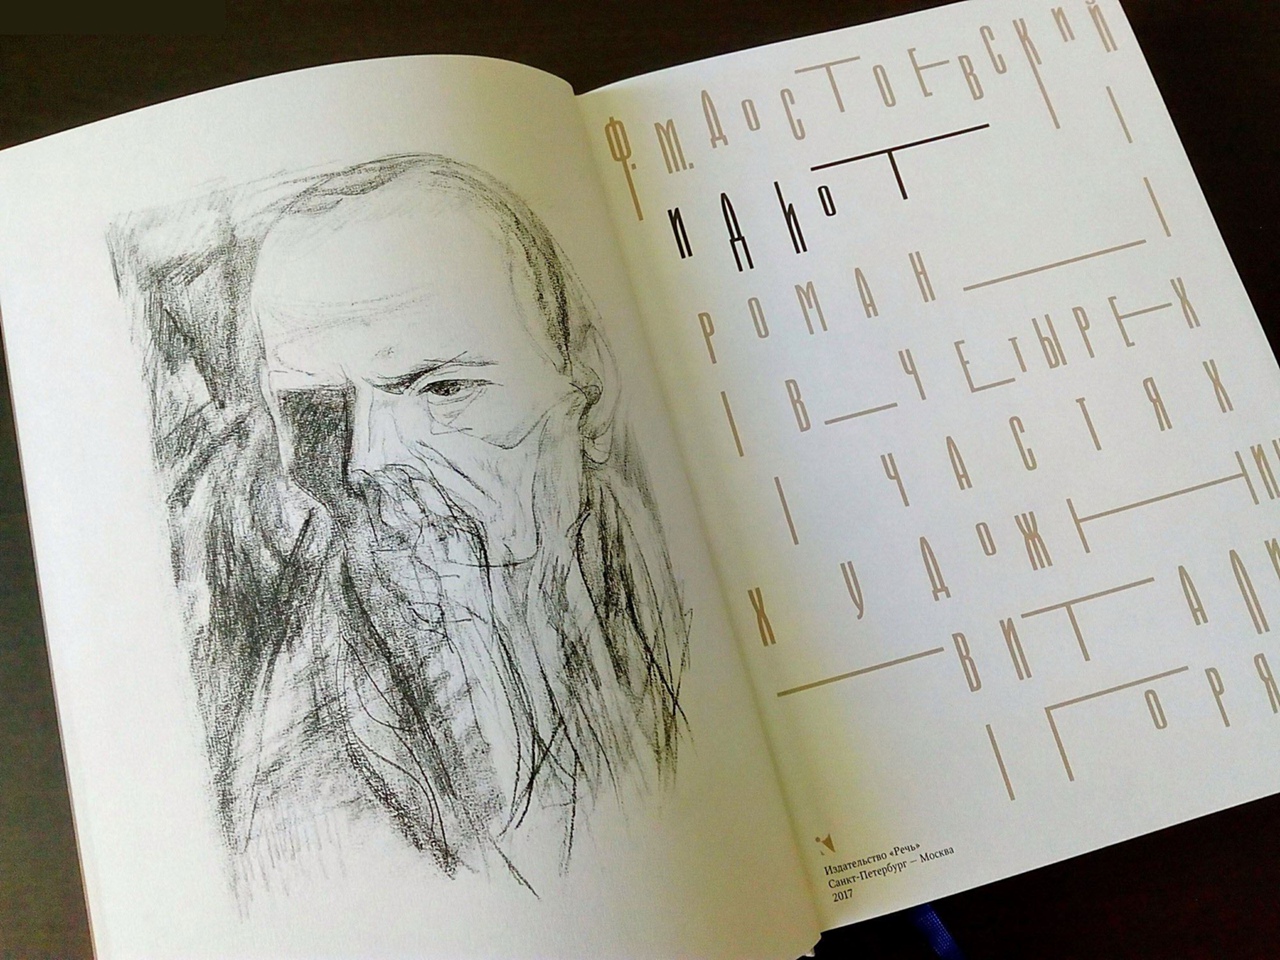 Ф. М. ДОСТОЕВСКИЙ
ИДИОТ
РОМАН
В ЧЕТЫРЕХ
ЧАСТЯХ
ХУДОЖНИ
ВИТАЛИ
ГОРЯ
Издательство «Речь»
Санкт-Петербург – Москва
2017